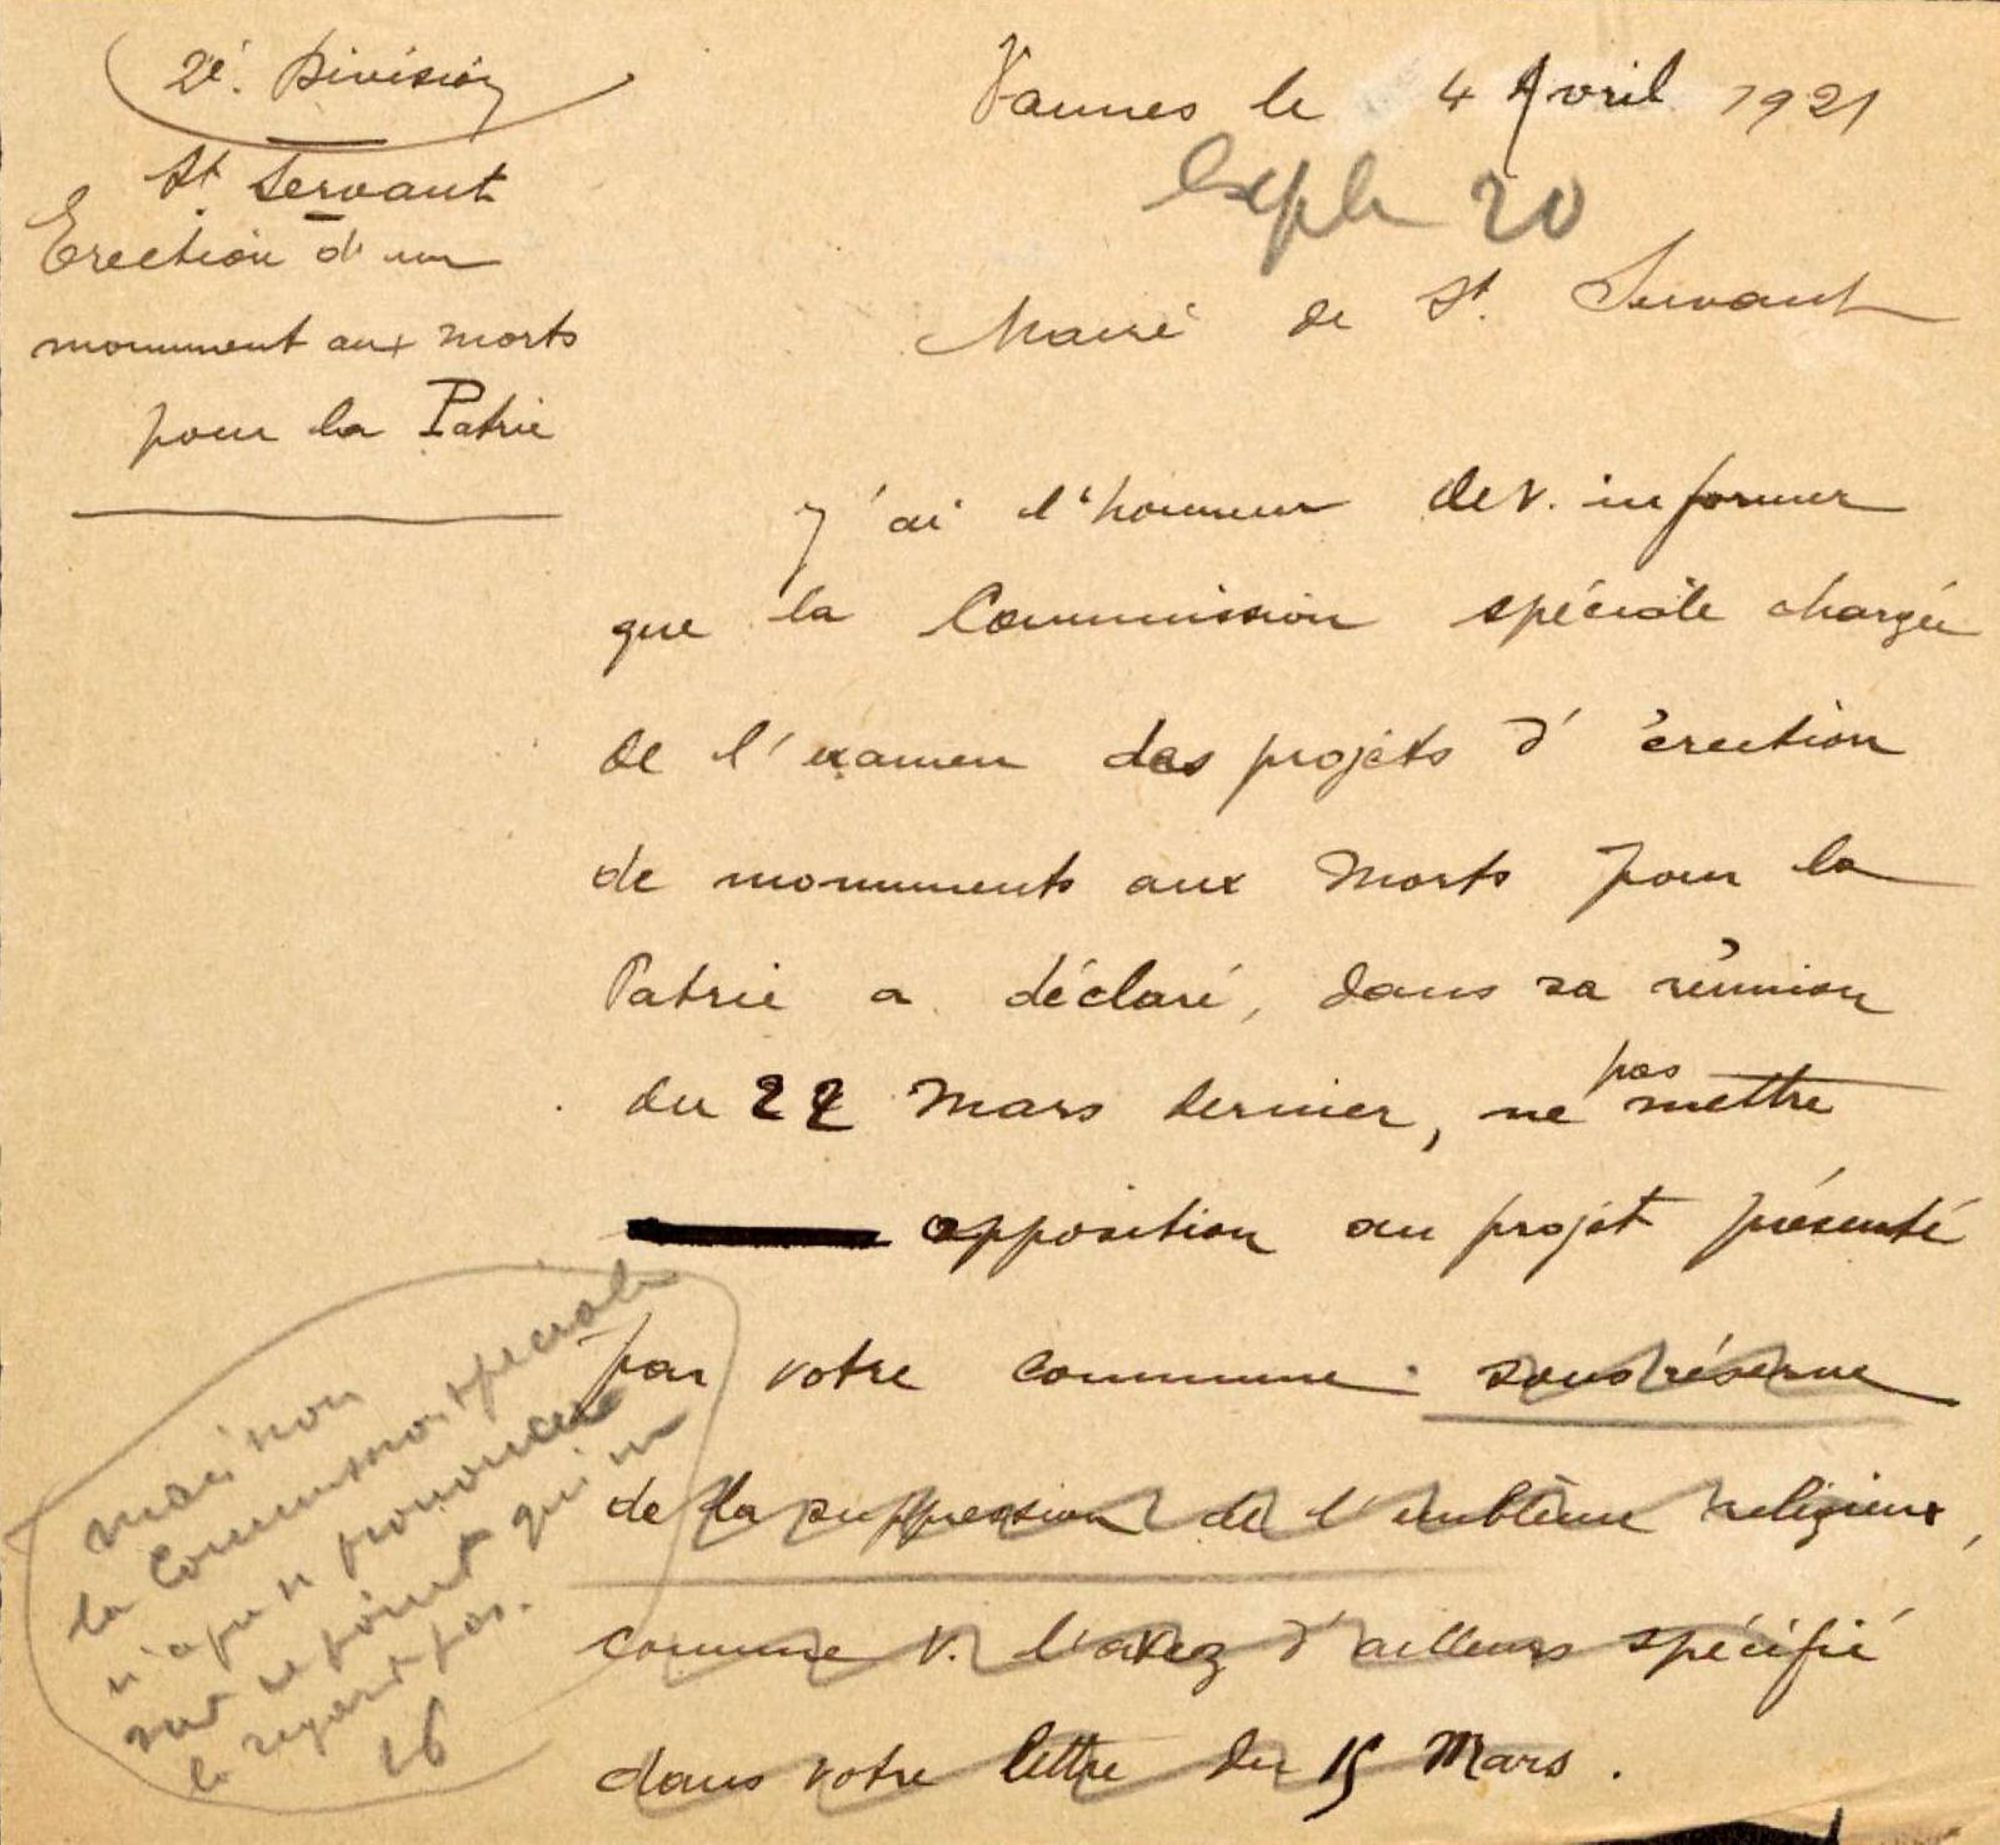 2e. Division
St Servant
Erection d'un
monument aux morts
pour la Patrie
Vannes le 4 Avril 1921
20
Maire de St. Servant
J'ai l'honneur de v. informer
que la Commission spéciale chargée
de l'examen des projets d'érection
de monuments aux Morts pour la
Patrie a déclaré, dans sa réunion
du 22 Mars dernier, ne pas mettre
opposition au projet présenté
par votre commune sous réserve
de la suppression de l'emblème religieux,
comme v. l'avez d'ailleurs spécifié
dans votre lettre du 15 Mars.
mais non
la Commission spéciale
n'a pu se prononcer
sur ce point qui ne
le regarde pas.